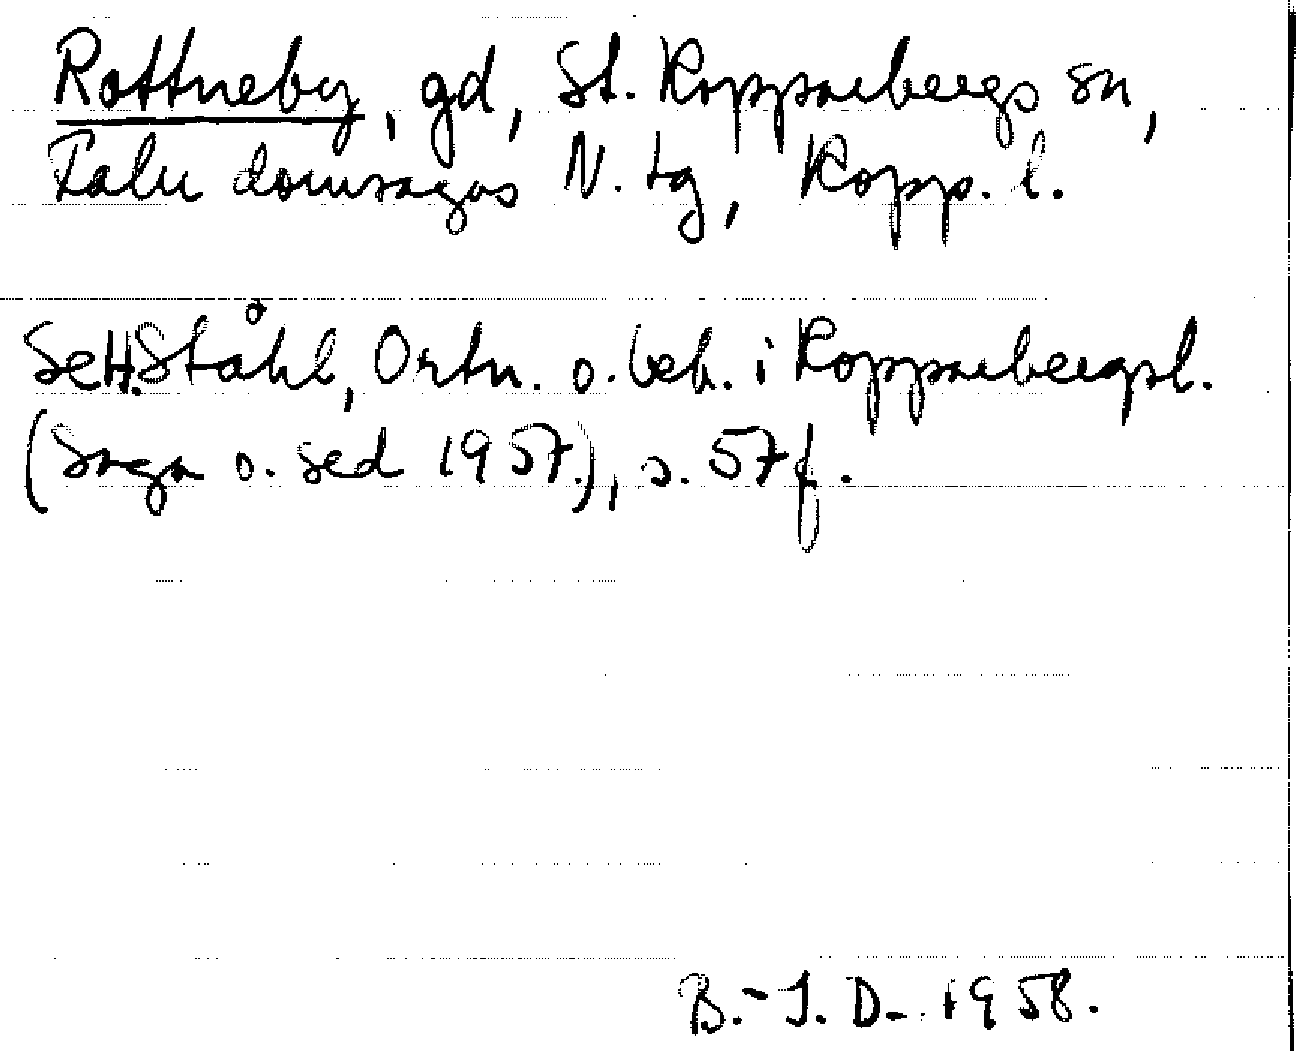 Rottneby, gd, St. Kopparbergs sn,
Falu domsagas N. tg, Kopp. l.
Se H. Ståhl, Ortn. o. beb. i Kopparbergsl.
(Saga o. sed 1957), s. 57 f.
B.-J. D. 1958.